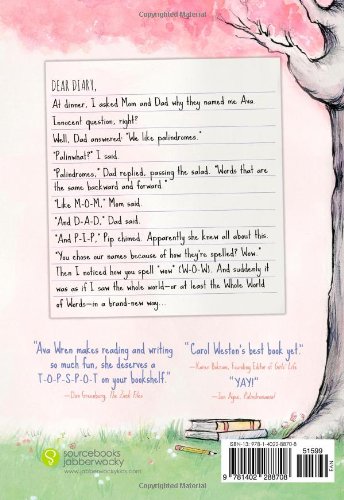 Copyrighted Material
DEAR DIARY,
At dinner, I asked Mom and Dad why they named me Ava.
Innocent question, right?
Well, Dad answered: "We like palindromes."
"Palinwhat?" I said.
"Palindromes," Dad replied, passing the salad. "Words that are
the same backward and forward."
"Like M-O-M," Mom said.
"And D-A-D," Dad said.
"And P-I-P," Pip chimed. Apparently she knew all about this.
"You chose our names because of how they're spelled? Wow."
Then I noticed how you spell "wow" (W-O-W). And suddenly it
was as if I saw the whole world—or at least the Whole World
of Words—in a brand-new way...
"Ava Wren makes reading and writing
so much fun, she deserves a
T-O-P-S-P-O-T on your bookshelf."
—Dan Greenburg, The Zack Files
"Carol Weston's best book yet."
—Karen Bokram, Founding Editor of Girls' Life
"YAY!"
—Jon Agee, Palindromania!
sourcebooks
jabberwocky
www.jabberwockykids.com
ISBN-13: 978-1-4022-8870-8
51599
EAN
9 781402 288708
Copyrighted Material